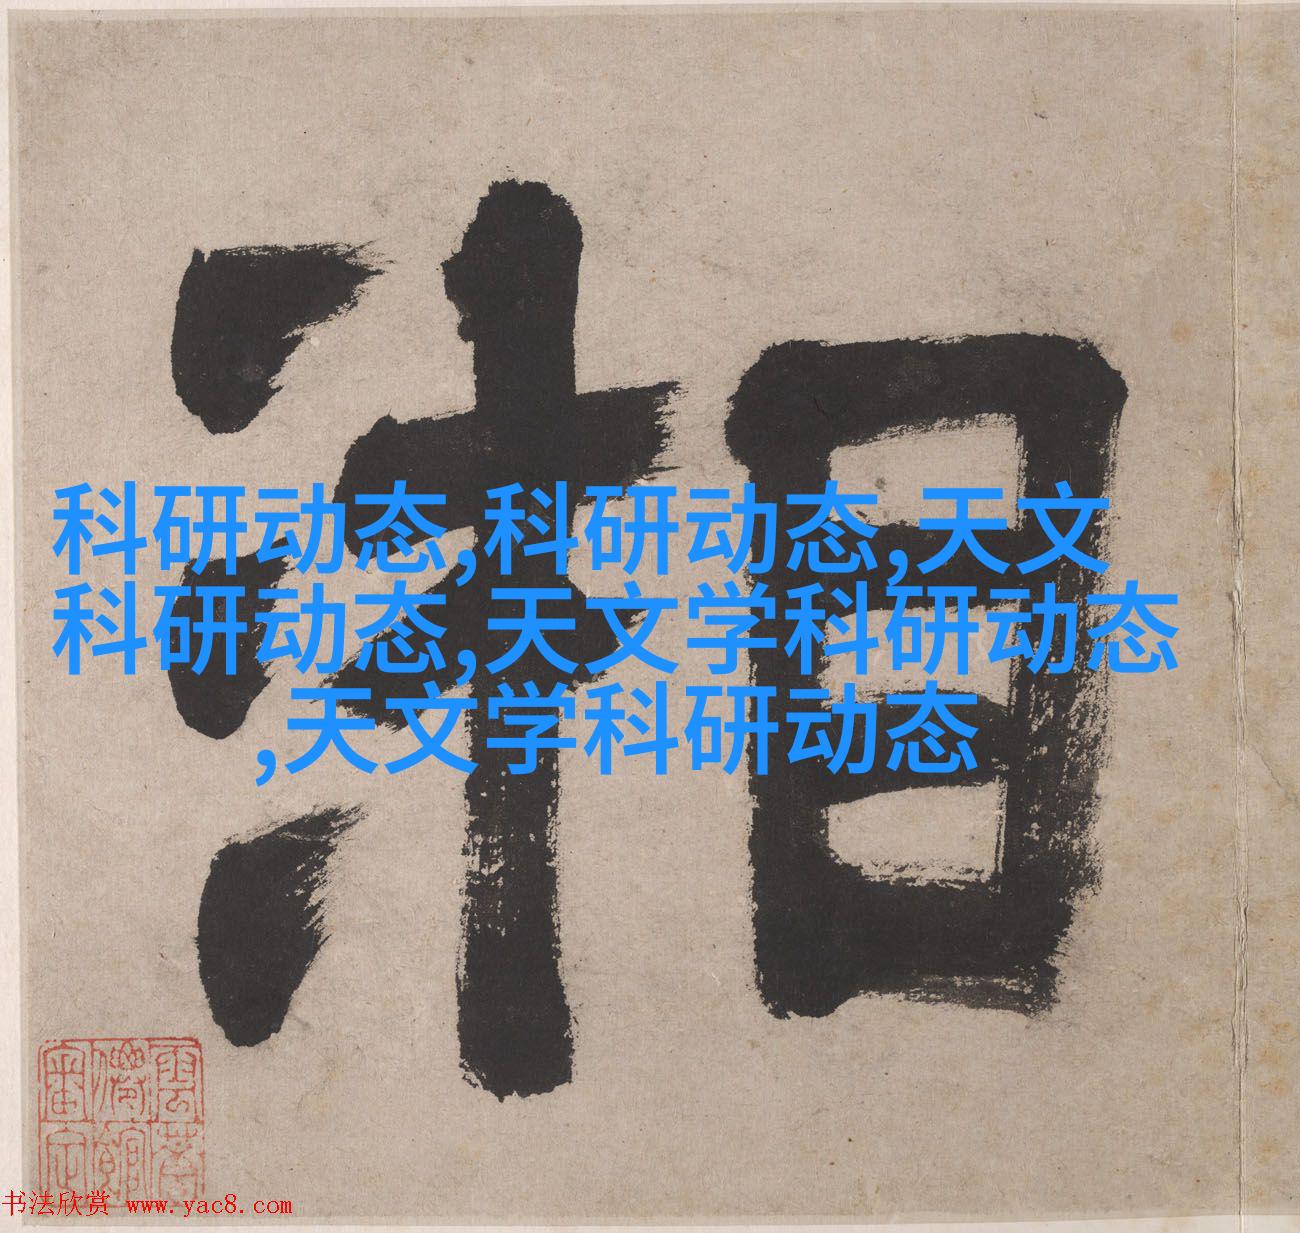 湘
科研动态,科研动态,天文
科研动态,天文学科研动态
,天文学科研动态
书法欣赏 www.yac8.com